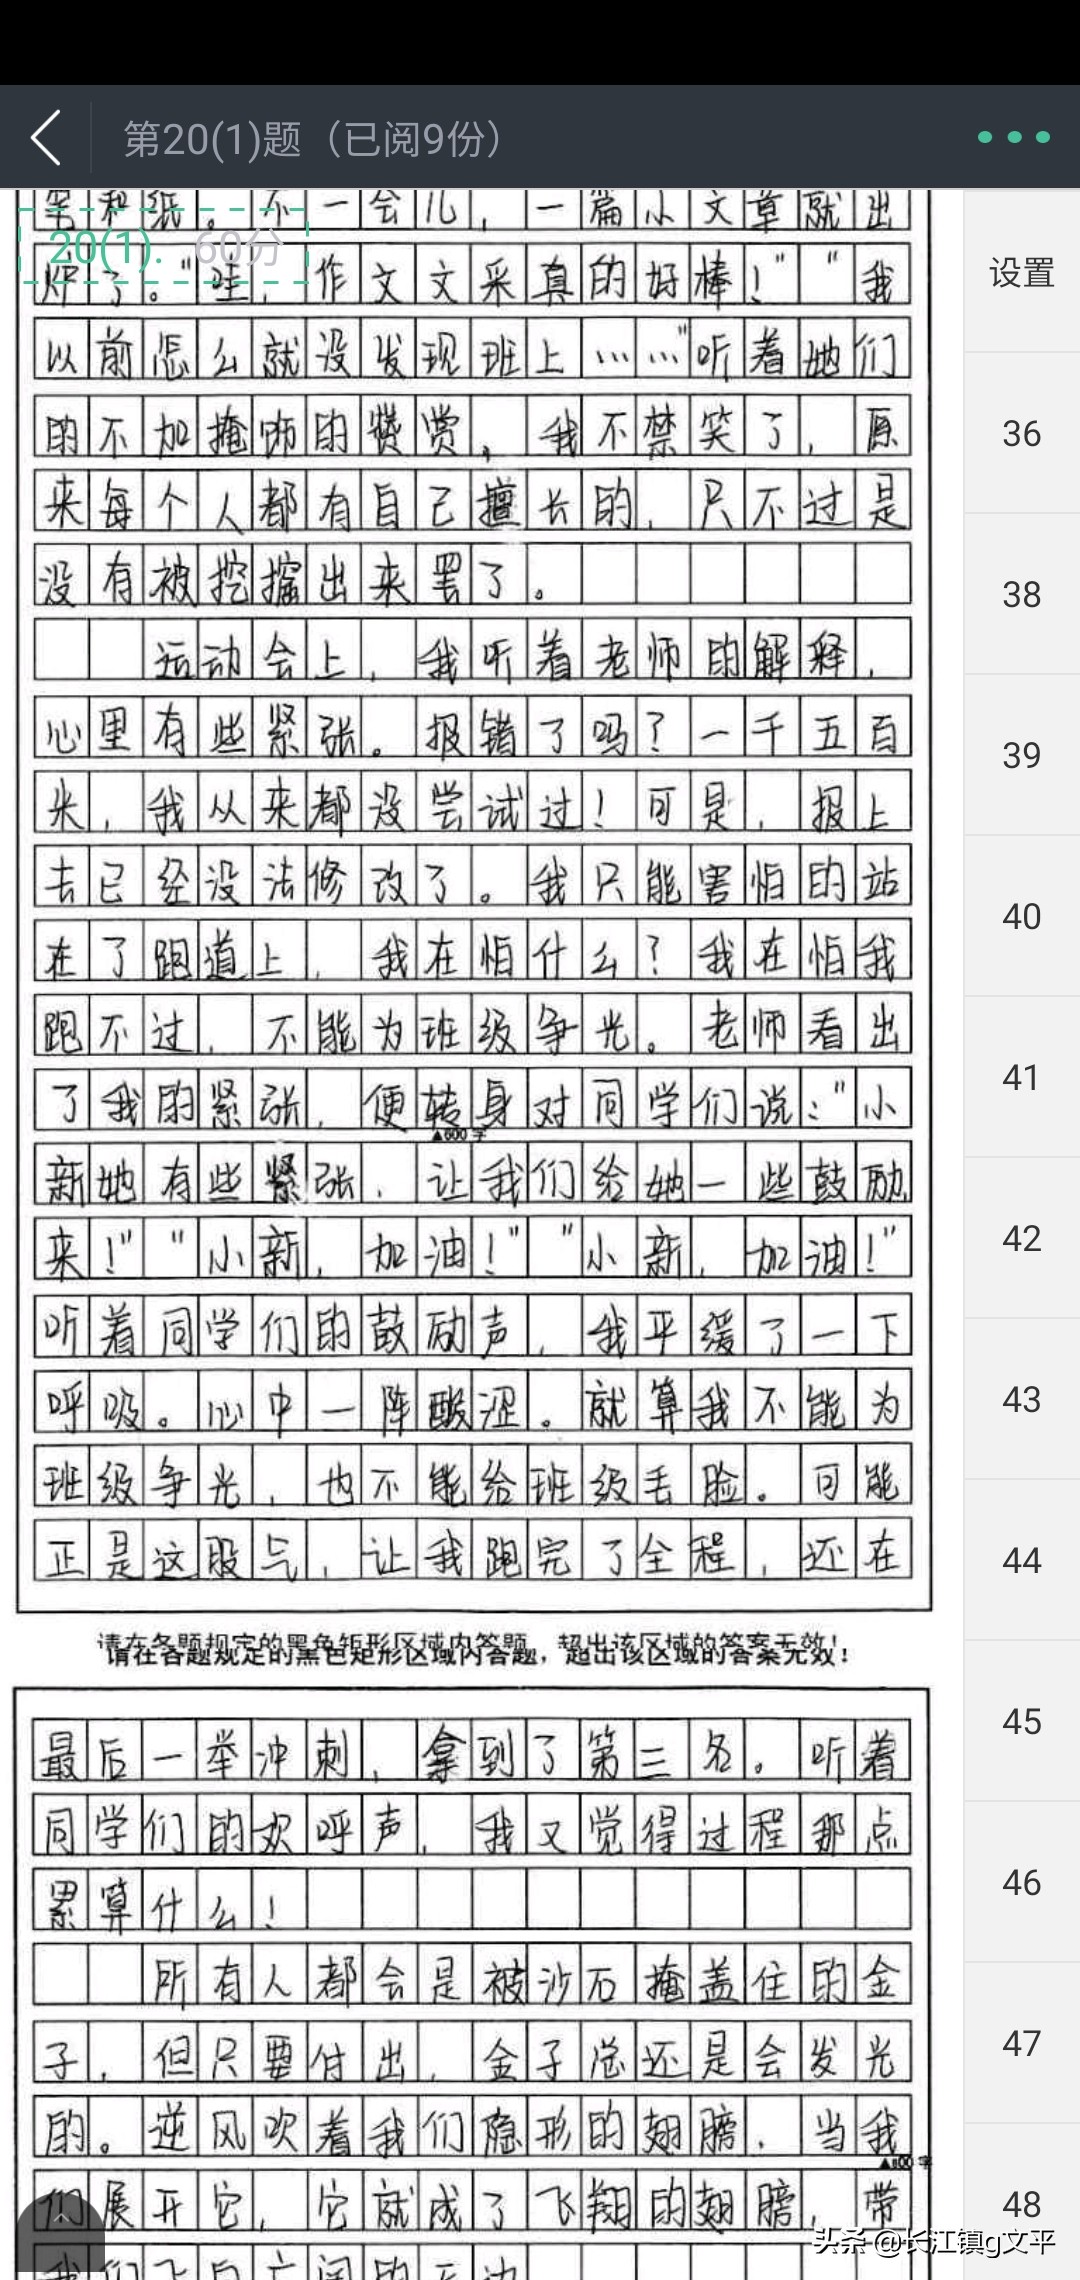 第20(1)题（已阅9份）
设置
36
38
39
40
41
42
43
44
45
46
47
48
20(1). 60分
笔和纸。不一会儿，一篇小文章就出
炉了。"哇，作文文采真的好棒！""我
以前怎么就没发现班上……"听着她们
的不加掩饰的赞赏，我不禁笑了，原
来每个人都有自己擅长的，只不过是
没有被挖掘出来罢了。
运动会上，我听着老师的解释，
心里有些紧张。报错了吗？一千五百
米，我从来都没尝试过！可是，报上
去已经没法修改了。我只能害怕的站
在了跑道上，我在怕什么？我在怕我
跑不过，不能为班级争光。老师看出
了我的紧张，便转身对同学们说："小
▲600字
新她有些紧张，让我们给她一些鼓励
来！""小新，加油！""小新，加油！"
听着同学们的鼓励声，我平缓了一下
呼吸。心中一阵酸涩。就算我不能为
班级争光，也不能给班级丢脸。可能
正是这股气，让我跑完了全程，还在
请在各题规定的黑色矩形区域内答题，超出该区域的答案无效！
请在各题规定的黑色矩形区域内答题，超出该区域的答案无效！
最后一举冲刺，拿到了第三名。听着
同学们的欢呼声，我又觉得过程那点
累算什么！
所有人都会是被沙石掩盖住的金
子，但只要付出，金子总还是会发光
的。逆风吹着我们隐形的翅膀，当我
▲800字
们展开它，它就成了飞翔的翅膀，带
头条 @长江镇g文平